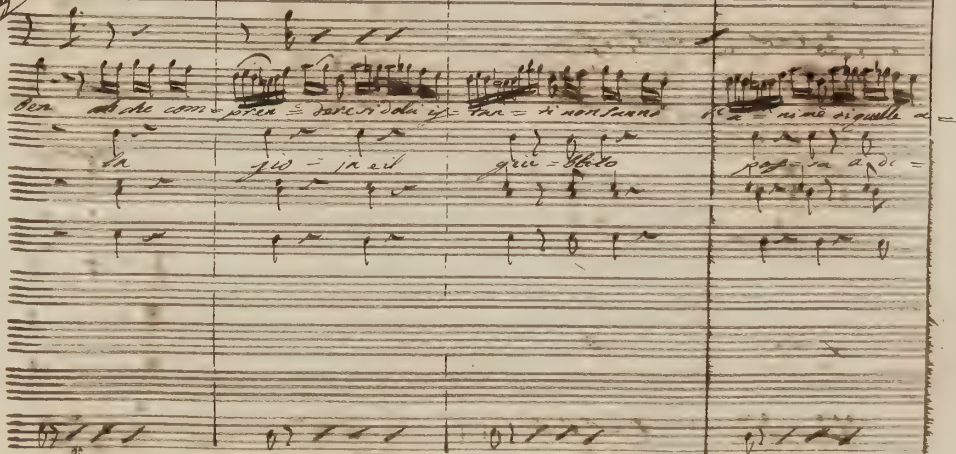 ben ah che com = pren = dere si dolci is = tan = ti non sanno l'a = nime di quelle a =
la gio = ja e il giu = bbilo pos = sa a di =